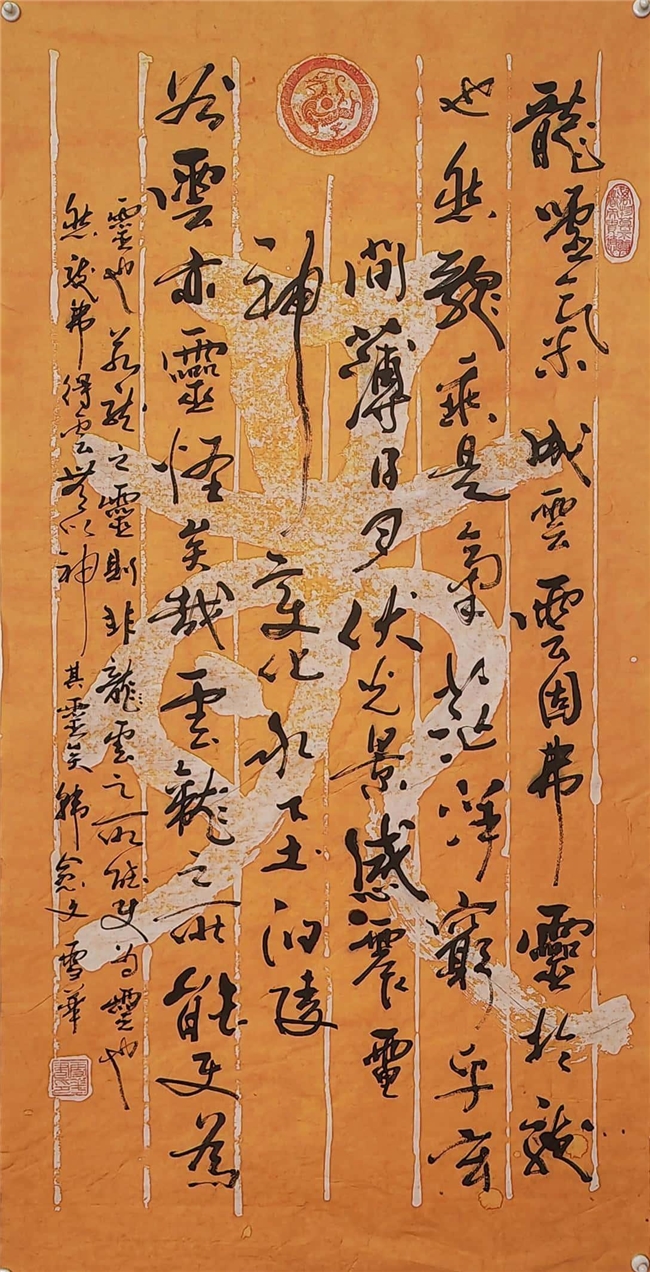 龍噓氣成雲雲固弗靈於龍
也然龍乘是氣茫洋窮乎玄
間薄日月伏光景感震電
神變化水下土汩陵
谷雲亦靈怪矣哉雲龍之所能使為
靈也若龍之靈則非龍雲之所能使為靈也
然龍弗得雲無以神其靈矣韓愈文雪華